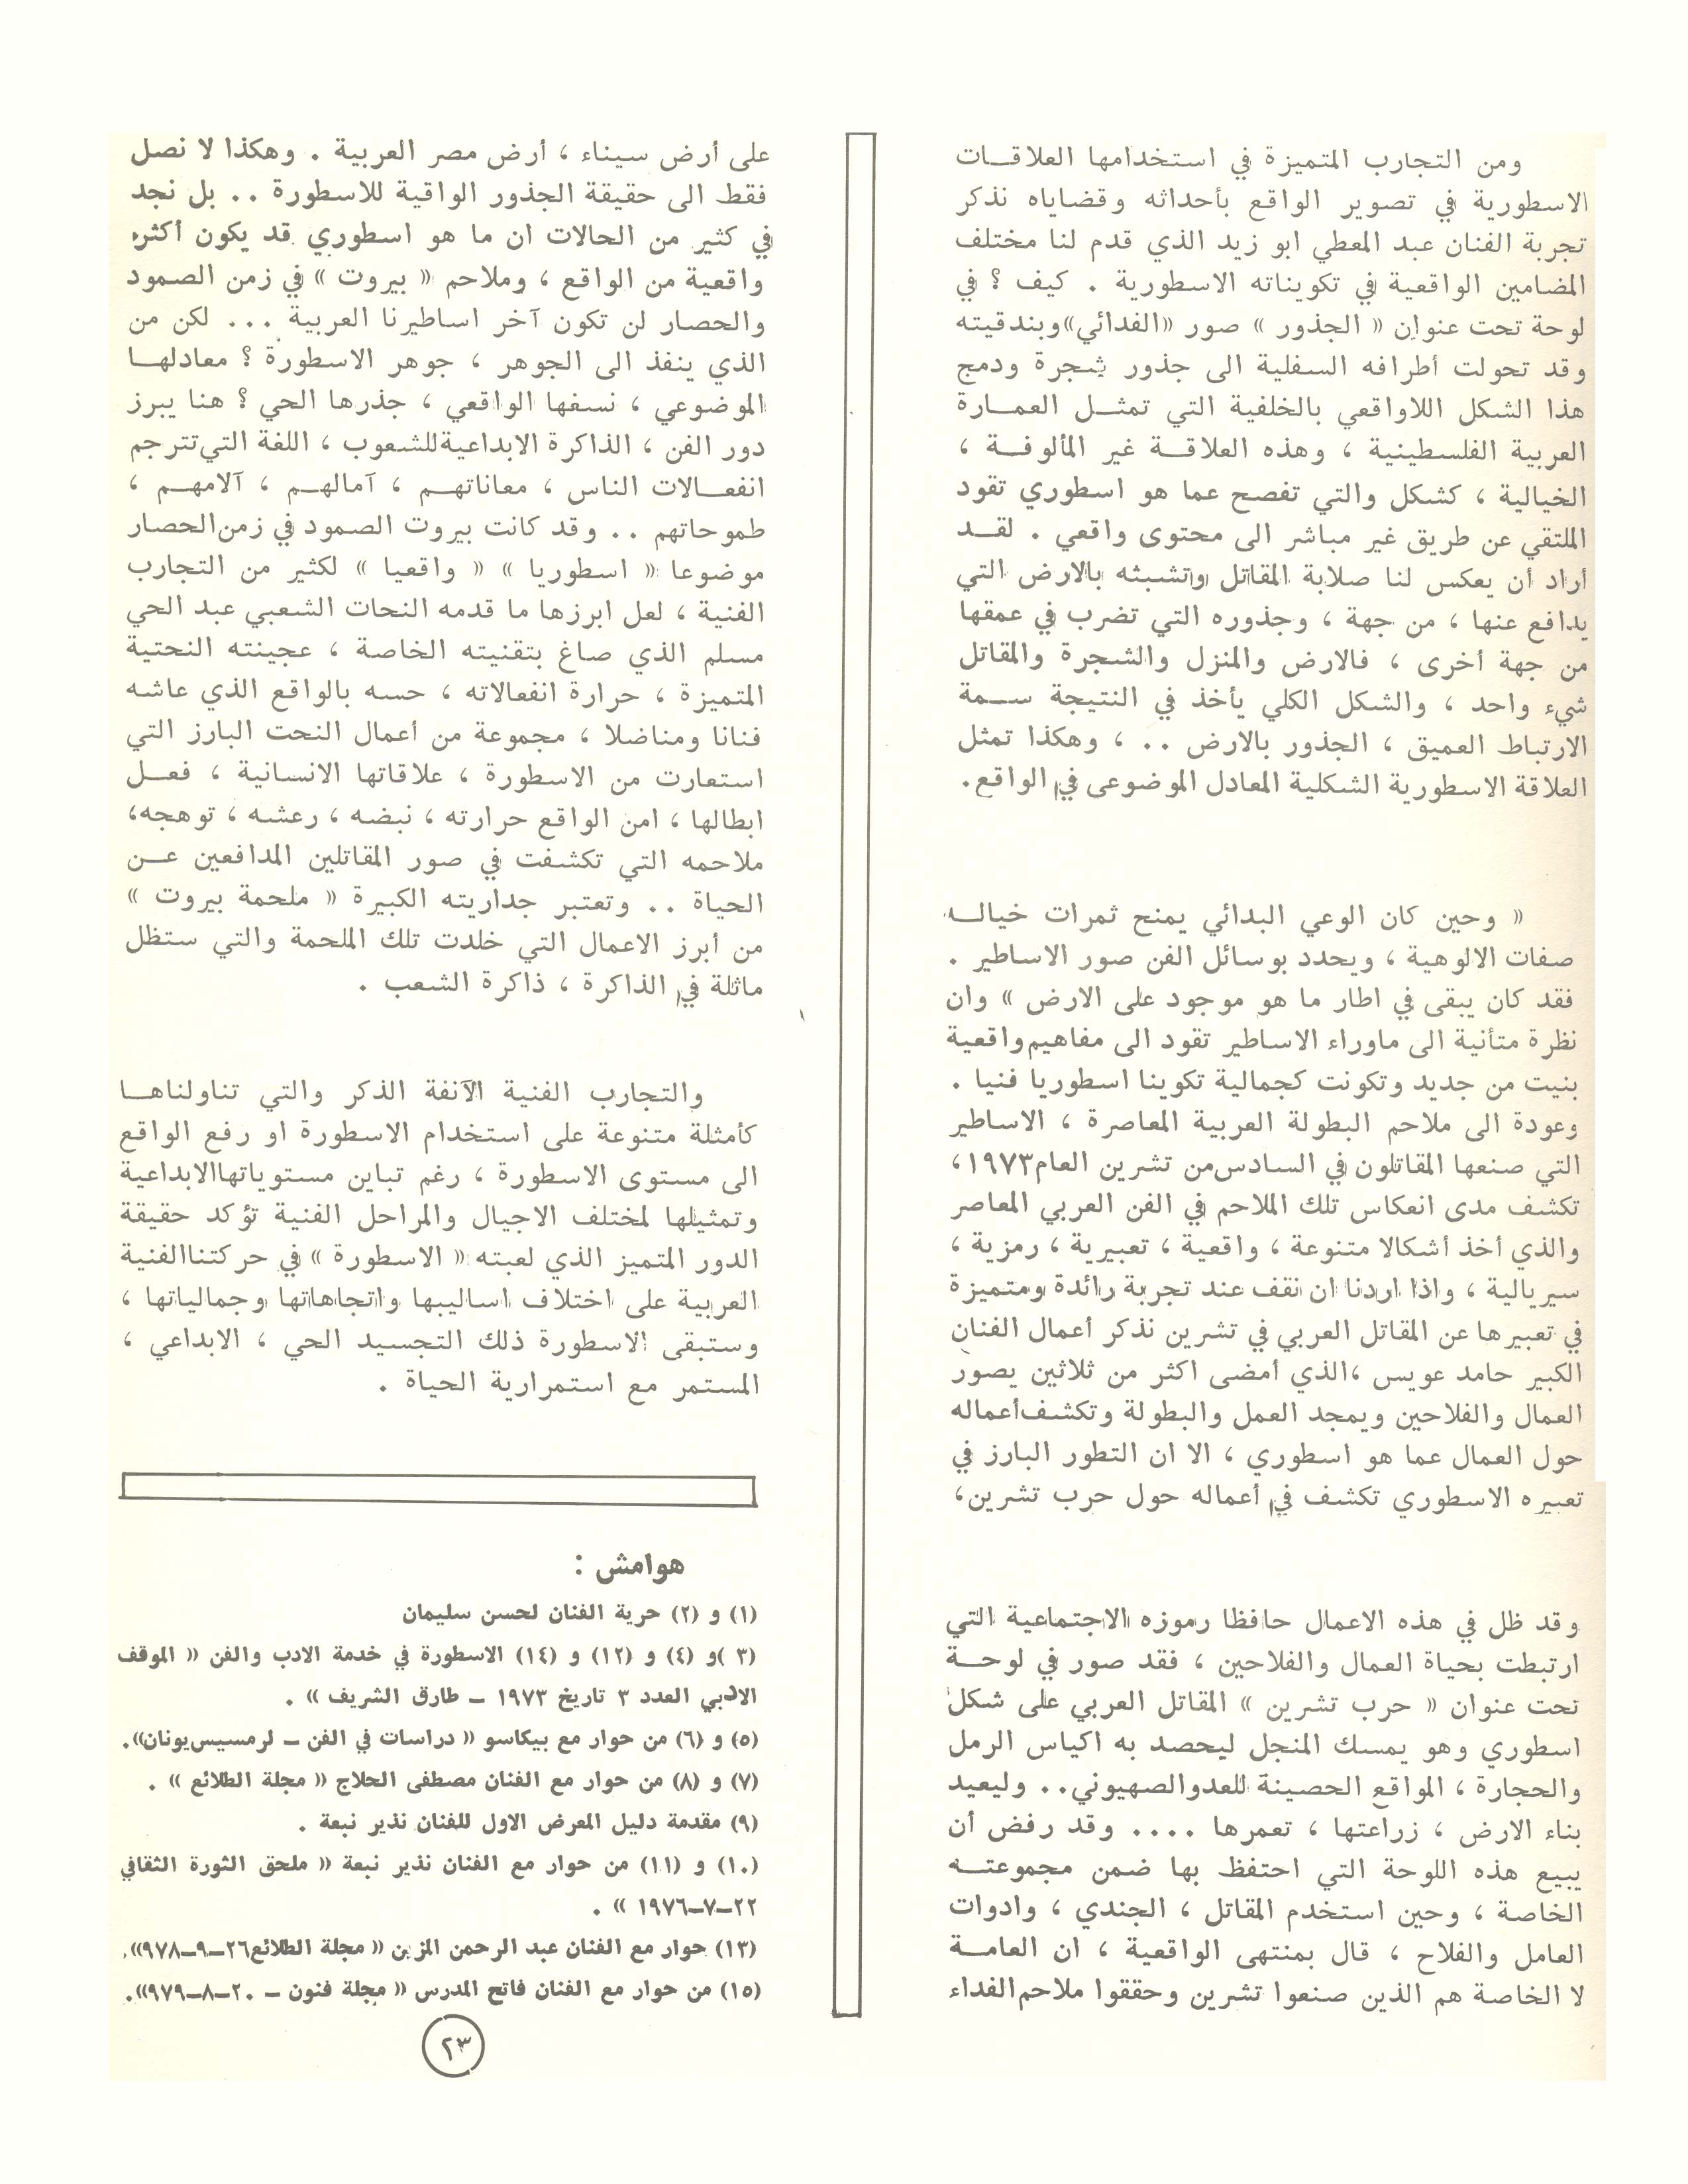 ومن التجارب المتميزة في استخدامها العلاقات
الاسطورية في تصوير الواقع بأحداثه وقضاياه نذكر
تجربة الفنان عبد المعطي ابو زيد الذي قدم لنا مختلف
المضامين الواقعية في تكويناته الاسطورية . كيف ؟ في
لوحة تحت عنوان « الجذور » صور «الفدائي» وبندقيته
وقد تحولت أطرافه السفلية الى جذور شجرة ودمج
هذا الشكل اللاواقعي بالخلفية التي تمثل العمارة
العربية الفلسطينية ، وهذه العلاقة غير المألوفة ،
الخيالية ، كشكل والتي تفصح عما هو اسطوري تقود
الملتقي عن طريق غير مباشر الى محتوى واقعي . لقد
أراد أن يعكس لنا صلابة المقاتل وتشبثه بالارض التي
يدافع عنها ، من جهة ، وجذوره التي تضرب في عمقها
من جهة أخرى ، فالارض والمنزل والشجرة والمقاتل
شيء واحد ، والشكل الكلي يأخذ في النتيجة سمة
الارتباط العميق ، الجذور بالارض .. ، وهكذا تمثل
العلاقة الاسطورية الشكلية المعادل الموضوعى في الواقع.
« وحين كان الوعي البدائي يمنح ثمرات خياله
صفات الالوهية ، ويحدد بوسائل الفن صور الاساطير .
فقد كان يبقى في اطار ما هو موجود على الارض » وان
نظرة متأنية الى ماوراء الاساطير تقود الى مفاهيم واقعية
بنيت من جديد وتكونت كجمالية تكوينا اسطوريا فنيا .
وعودة الى ملاحم البطولة العربية المعاصرة ، الاساطير
التي صنعها المقاتلون في السادس من تشرين العام ١٩٧٣،
تكشف مدى انعكاس تلك الملاحم في الفن العربي المعاصر
والذي أخذ أشكالا متنوعة ، واقعية ، تعبيرية ، رمزية ،
سيريالية ، واذا اردنا ان نقف عند تجربة رائدة ومتميزة
في تعبيرها عن المقاتل العربي في تشرين نذكر أعمال الفنان
الكبير حامد عويس ،الذي أمضى اكثر من ثلاثين يصور
العمال والفلاحين ويمجد العمل والبطولة وتكشف أعماله
حول العمال عما هو اسطوري ، الا ان التطور البارز في
تعبيره الاسطوري تكشف في أعماله حول حرب تشرين،
وقد ظل في هذه الاعمال حافظا رموزه الاجتماعية التي
ارتبطت بحياة العمال والفلاحين ، فقد صور في لوحة
تحت عنوان « حرب تشرين » المقاتل العربي على شكل
اسطوري وهو يمسك المنجل ليحصد به اكياس الرمل
والحجارة ، المواقع الحصينة للعدو الصهيوني.. وليعيد
بناء الارض ، زراعتها ، تعمرها .... وقد رفض أن
يبيع هذه اللوحة التي احتفظ بها ضمن مجموعته
الخاصة ، وحين استخدم المقاتل ، الجندي ، وادوات
العامل والفلاح ، قال بمنتهى الواقعية ، ان العامة
لا الخاصة هم الذين صنعوا تشرين وحققوا ملاحم الفداء
على أرض سيناء ، أرض مصر العربية . وهكذا لا نصل
فقط الى حقيقة الجذور الواقية للاسطورة .. بل نجد
في كثير من الحالات ان ما هو اسطوري قد يكون أكثر
واقعية من الواقع ، وملاحم « بيروت » في زمن الصمود
والحصار لن تكون آخر اساطيرنا العربية ... لكن من
الذي ينفذ الى الجوهر ، جوهر الاسطورة ؟ معادلها
الموضوعي ، نسفها الواقعي ، جذرها الحي ؟ هنا يبرز
دور الفن ، الذاكرة الابداعية للشعوب ، اللغة التي تترجم
انفعالات الناس ، معاناتهم ، آمالهم ، آلامهم ،
طموحاتهم .. وقد كانت بيروت الصمود في زمن الحصار
موضوعا « اسطوريا » « واقعيا » لكثير من التجارب
الفنية ، لعل ابرزها ما قدمه النحات الشعبي عبد الحي
مسلم الذي صاغ بتقنيته الخاصة ، عجينته النحتية
المتميزة ، حرارة انفعالاته ، حسه بالواقع الذي عاشه
فنانا ومناضلا ، مجموعة من أعمال النحت البارز التي
استعارت من الاسطورة ، علاقاتها الانسانية ، فعل
ابطالها ، امن الواقع حرارته ، نبضه ، رعشه ، توهجه،
ملاحمه التي تكشفت في صور المقاتلين المدافعين عن
الحياة .. وتعتبر جداريته الكبيرة « ملحمة بيروت »
من أبرز الاعمال التي خلدت تلك الملحمة والتي ستظل
ماثلة في الذاكرة ، ذاكرة الشعب .
والتجارب الفنية الآنفة الذكر والتي تناولناها
كأمثلة متنوعة على استخدام الاسطورة او رفع الواقع
الى مستوى الاسطورة ، رغم تباين مستوياتها الابداعية
وتمثيلها لمختلف الاجيال والمراحل الفنية تؤكد حقيقة
الدور المتميز الذي لعبته « الاسطورة » في حركتنا الفنية
العربية على اختلاف اساليبها واتجاهاتها وجمالياتها ،
وستبقى الاسطورة ذلك التجسيد الحي ، الابداعي ،
المستمر مع استمرارية الحياة .
هوامش :
(١) و (٢) حرية الفنان لحسن سليمان
(٣ )و (٤) و (١٢) و (١٤) الاسطورة في خدمة الادب والفن « الموقف
الادبي العدد ٣ تاريخ ١٩٧٣ - طارق الشريف » .
(٥) و (٦) من حوار مع بيكاسو « دراسات في الفن - لرمسيس يونان».
(٧) و (٨) من حوار مع الفنان مصطفى الحلاج « مجلة الطلائع » .
(٩) مقدمة دليل المعرض الاول للفنان نذير نبعة .
(١٠) و (١١) من حوار مع الفنان نذير نبعة « ملحق الثورة الثقافي
٢٢-٧-١٩٧٦ » .
(١٣) حوار مع الفنان عبد الرحمن المزين « مجلة الطلائع ٢٦-٩-٩٧٨».
(١٥) من حوار مع الفنان فاتح المدرس « مجلة فنون - ٢٠-٨-٩٧٩».
٢٣